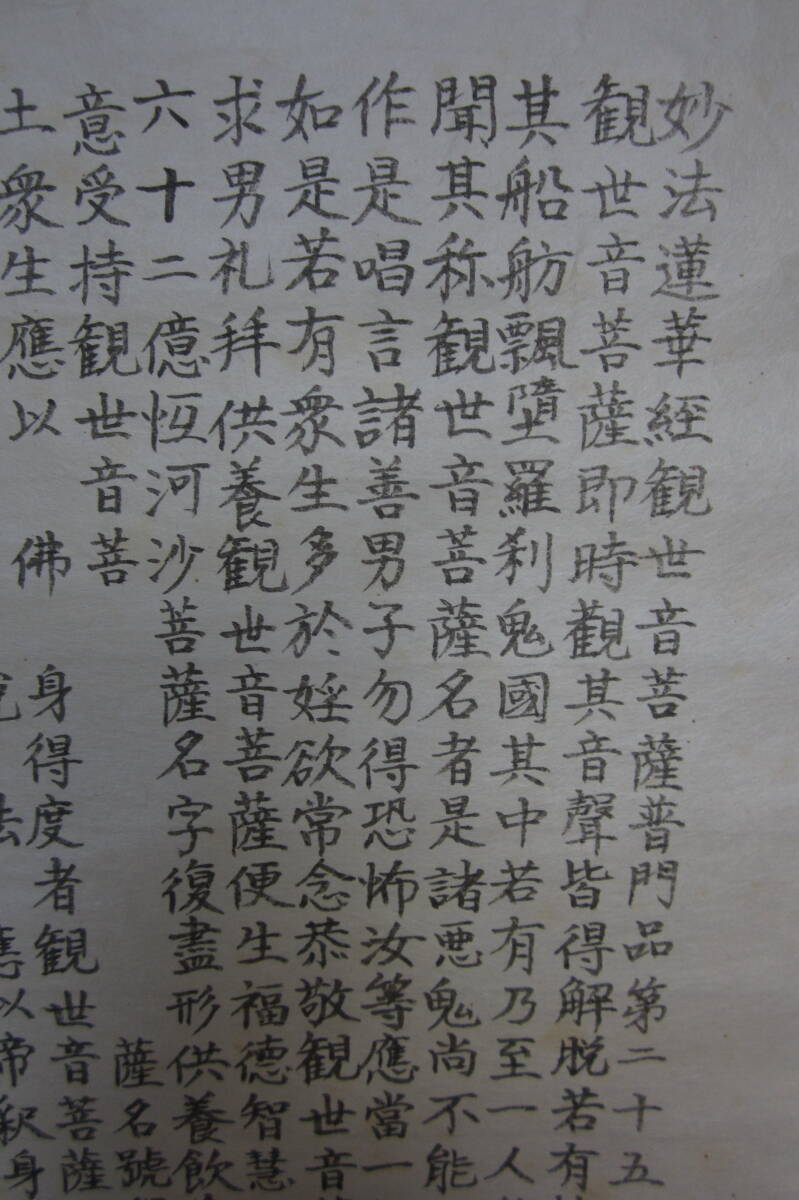 妙法蓮華経観世音菩薩普門品第二十五
観世音菩薩即時觀其音聲皆得解脱若有
其船舫飄墮羅刹鬼國其中若有乃至一人
聞其称観世音菩薩名者是諸悪鬼尚不能
作是唱言諸善男子勿得恐怖汝等應當一
如是若有衆生多於婬欲常念恭敬観世音
求男礼拜供養観世音菩薩便生福德智慧
六十二億恆河沙菩薩名字復盡形供養飲
意受持観世音菩薩名號
土衆生應以佛身得度者観世音菩薩
法應以帝釈身